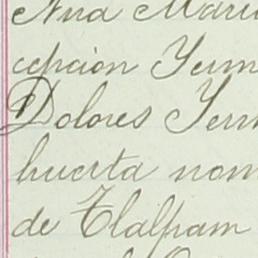 Ana Marí
cepcion Yerm
Dolores Yerm
huerta nom
de Tlalpam